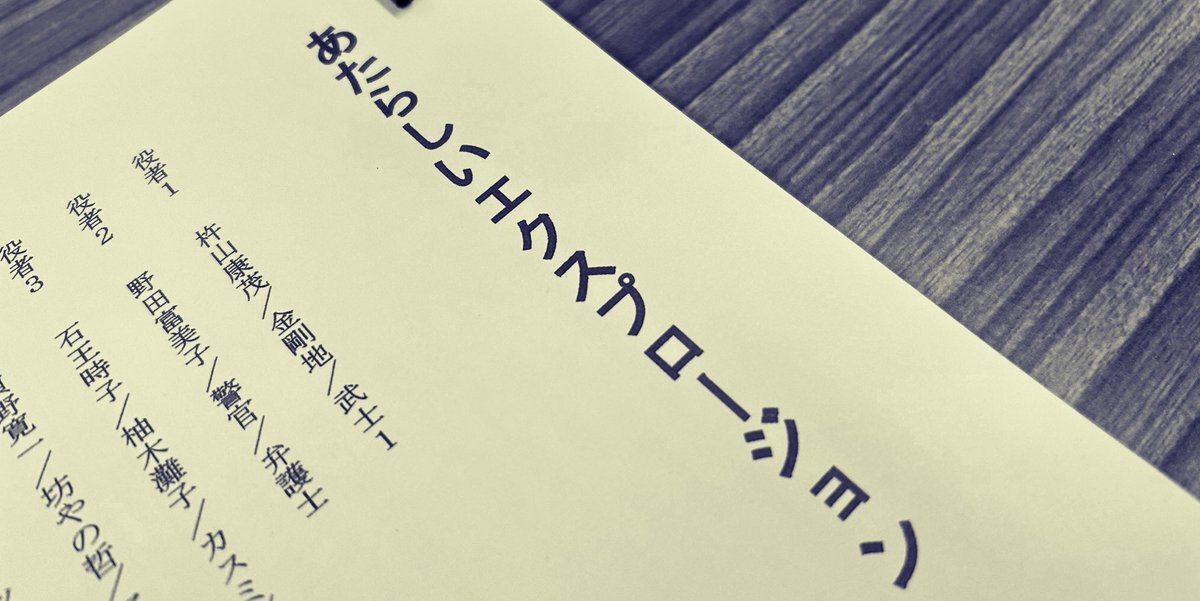 あたらしいエクスプロージョン
役者1 杵山康茂/金剛地/武士1
役者2 野田富美子/警官/弁護士
役者3 石王時子/柚木灘子/カスミ
野寛一/坊やの哲/